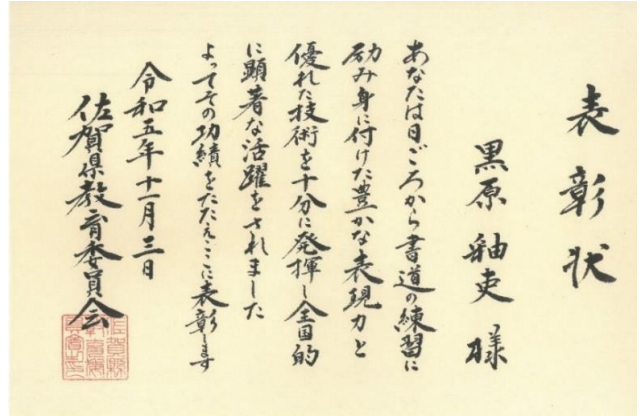 表彰状
黒原釉吏様
あなたは日ごろから書道の練習に
励み身に付けた豊かな表現力と
優れた技術を十分に発揮し全国的
に顕著な活躍をされました
よってその功績をたたえここに表彰します
令和五年十一月三日
佐賀県教育委員会